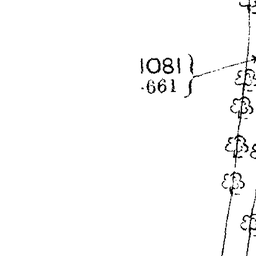 1081
.661